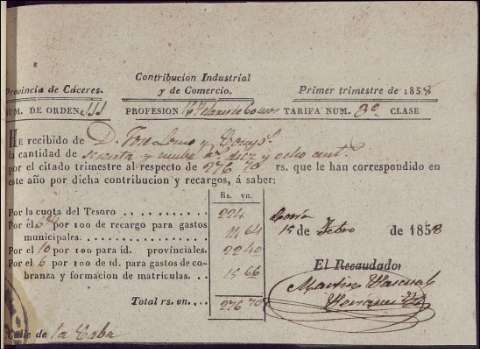 Provincia de Cáceres.
Contribucion Industrial
y de Comercio.
Primer trimestre de 1858
NUM. DE ORDEN 111
PROFESION
TARIFA NUM. 3º CLASE
HE recibido de D. y Comp.
la cantidad de y nueve diez y ocho cent.
por el citado trimestre al respecto de 276 70 rs. que le han correspondido en
este año por dicha contribucion y recargos, á saber:
Rs. vn.
Por la cuota del Tesoro 224
Por el por 100 de recargo para gastos
municipales. 64
Por el 10 por 100 para id. provinciales. 22 40
Por el 6 por 100 de id. para gastos de cobranza
y formacion de matrículas. 15 66
Total rs. vn. 276 70
15 de Febro de 1858
El Recaudador
Martin Pascual
Calle de la